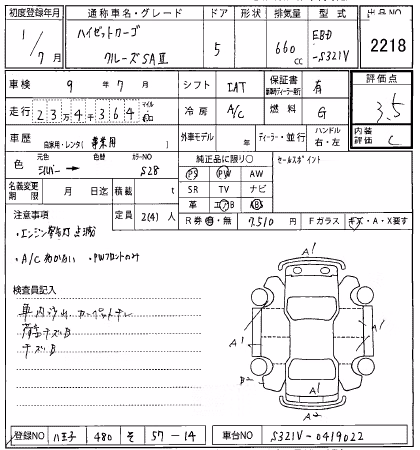 初度登録年月 通称車名・グレード ドア 形状 排気量 型式 出品NO
1/7月 ハイゼットカーゴ クルーズSAⅢ 5 660cc EBD-S321V 2218
車検 9年7月 シフト IAT 保証書 有 評価点
走行 23万4千364 マイル 冷房 A/C 燃料 G 3.5
車歴 自家用・レンタ( 事業用 外車モデル 年 ディーラー・並行 ハンドル 右・左 内装評価 C
色 元色 シルバー → 色替 カラーNO S28 純正品に限り○ セールスポイント
PS PW AW
名義変更期限 月 日迄 積載 t SR TV ナビ
定員 2(4)人 革 エアB ABS
注意事項 R券 有・無 7,510円 Fガラス キズ・A・X要す
・エンジン警告灯点滅
・A/C ・PWフロントのみ
検査員記入
車内汚れ
荷室キズB
チズB
A1
A1
A1
A1
B2
A1
A2
登録NO 八王子 480 そ 57-14 車台NO S321V-0419022